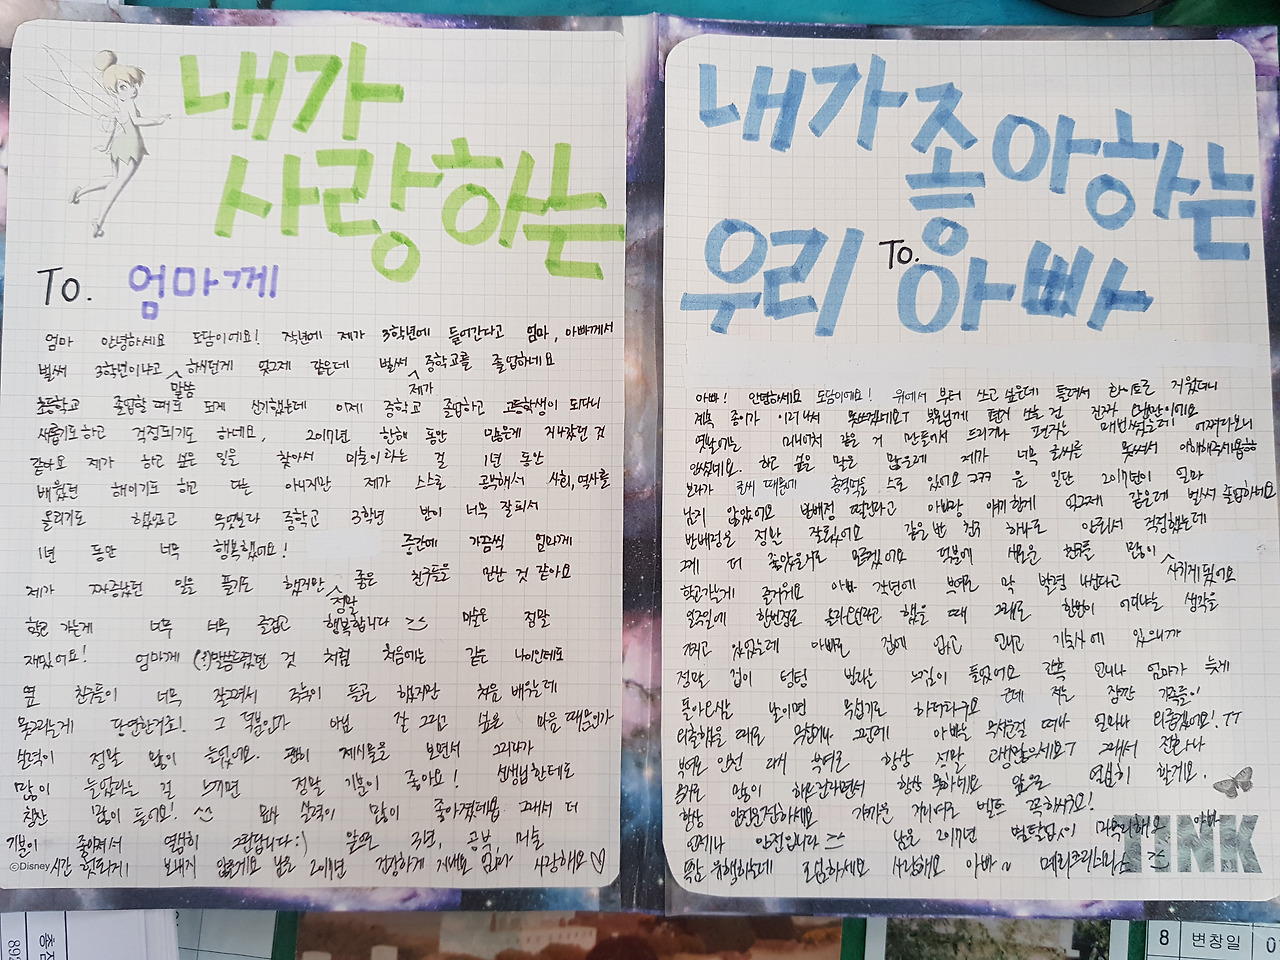 내가
사랑하는
To. 엄마께
엄마 안녕하세요 도담이에요! 작년에 제가 3학년에 들어간다고 엄마, 아빠께서
벌써 3학년이냐고 말씀하시던게 엊그제 같은데 벌써 제가 중학교를 졸업하네요
초등학교 졸업할 때도 되게 신기했는데 이제 중학교 졸업하고 고등학생이 되다니
새롭기도하고 걱정되기도 하네요. 2017년 한해 동안 많은게 지나갔던 것
같아요 제가 하고 싶은 일을 찾아서 미술이라는 걸 1년 동안
배웠던 해이기도 하고 또는 아니지만 제가 스스로 공부해서 사회, 역사를
올리기도 했었고 무엇보다 중학교 3학년 반이 너무 잘되서
1년 동안 너무 행복했어요! 중간에 가끔씩 엄마께
제가 짜증냈던 일은 있기도 했지만 정말 좋은 친구들을 만난 것 같아요
학교 가는게 너무 너무 즐겁고 행복합니다 미술은 정말
재밌어요! 엄마께 말씀드렸던 것 처럼 처음에는 같은 나이인데도
옆 친구들이 너무 잘그려서 주눅이 들곤 했지만 처음 배우는데
못그리는게 당연한거죠! 그 덕분인가 아님 잘 그리고 싶은 마음 때문인가
실력이 정말 많이 늘었어요. 괜히 제시물을 보면서 그리다가
많이 늘었다는 걸 느끼면 정말 기분이 좋아요! 선생님한테도
칭찬 많이 들어요! ^^ 요새 실력이 많이 좋아졌대요 그래서 더
기분이 좋아져서 열심히 그린답니다 :) 앞으로 3년, 공부, 미술
시간 헛되게 보내지 않을게요 남은 2017년 건강하게 지내요 엄마 사랑해요♡
©Disney
내가 좋아하는
To.
우리 아빠
아빠! 안녕하세요 도담이에요! 위에서 부터 쓰고 싶은데 틀려서 화이트로 지웠더니
계속 종이가 일어나서 못쓰겠네요ㅜ 부모님께 편지 쓰는 건 진짜 오랜만이에요
옛날에는 미니어처 같은 거 만들어서 드리거나 편지는 매번썼는데 어쩌다보니
안썼네요. 하고 싶은 말은 많은데 제가 너무 글씨를 못써서 이해해주세용
보다가 글씨 때문에 충격먹을 수도 있어요 ㅋㅋㅋ 음 일단 2017년이 얼마
남지 않았어요 반배정 떨린다고 아빠랑 얘기한게 엊그제 같은데 벌써 졸업하네요
반배정은 정말 잘됐어요 같은반 친구 하나도 안되서 걱정했는데
그게 더 좋았을지도 모르겠어요 덕분에 새로운 친구를 많이 사귀게 됐어요
학교가는게 즐거워요 아빠 작년에 부여로 막 발령 나신다고
일주일에 한번정도 올라오신다고 했을 때 그래도 한번이 어디냐는 생각을
가지고 있었는데 아빠도 집에 없고 언니도 기숙사에 있으니까
정말 집이 텅텅 비다는 느낌이 들었어요 간혹 언니나 엄마가 늦게
돌아오시는 날이면 무섭기도 하더라구요 근데 저는 잠깐 가족들이
외출했을 때도 무섭거나 그런데 아빠는 무서운걸 떠나 얼마나 외롭겠어요! ㅜㅜ
부여로 인천 다시 부여로 항상 정말 고생많으세요ㅜ 그래서 전화나
문자도 많이 해드린다면서 항상 못하네요 앞으로 열심히 할게요.
항상 안전운전하세요 가까운 거리여도 벨트 꼭하시구요!
언제나 안전입니다 남은 2017년 별탈없이 마무리해요 아빠
조심하세요 사랑해요 아빠~ 메리크리스마스
TINK
8 변창일